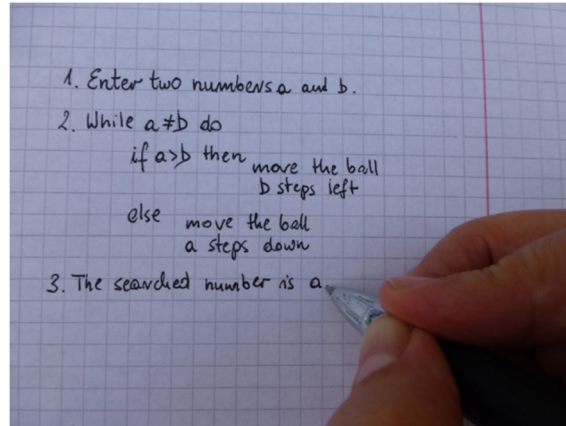 1. Enter two numbers a and b.
2. While a≠b do
if a>b then
move the ball
b steps left
else
move the ball
a steps down
3. The searched number is a